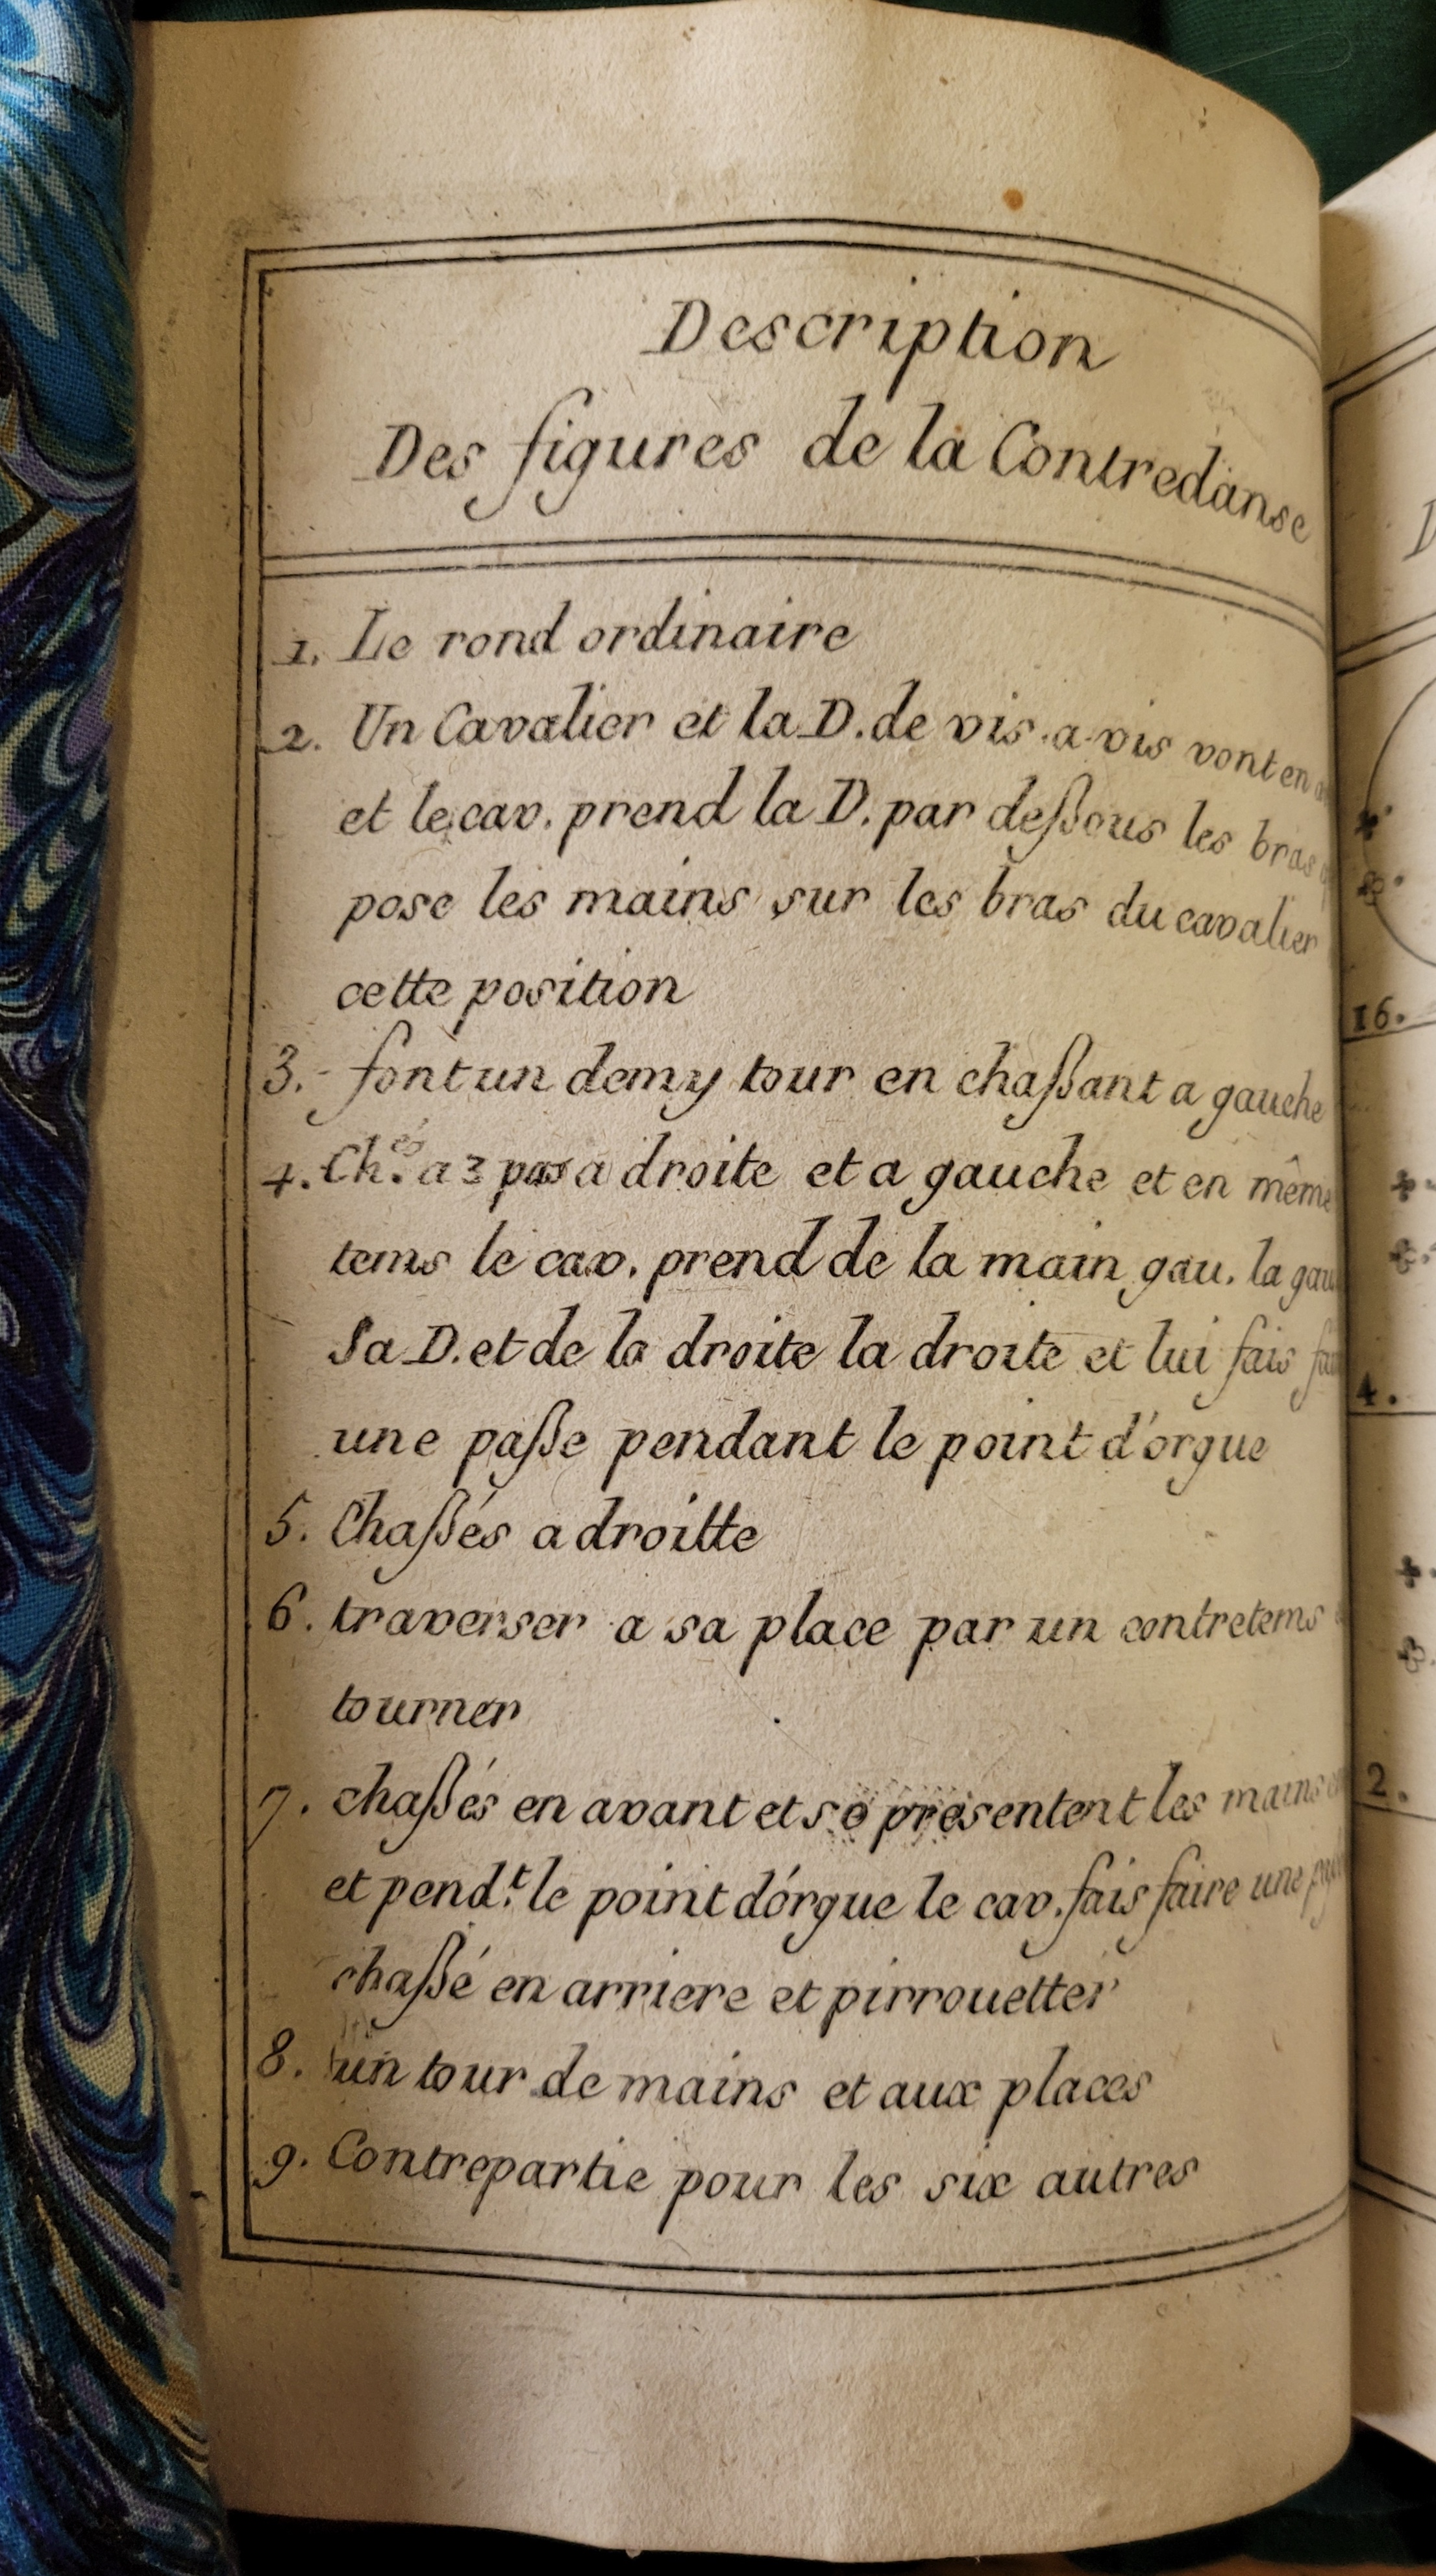 Description
Des figures de la Contredanse
1. Le rond ordinaire
2. Un Cavalier et la D. de vis-a-vis vont en
et le cav. prend la D. par deßous les bras
pose les mains sur les bras du cavalier
cette position
3. font un demy tour en chaßant a gauche
4. Ch.és a 3 pas a droite et a gauche et en même
tems le cav. prend de la main gau. la
Sa D. et de la droite la droite et lui fais
une paße pendant le point d'orgue
5. Chaßés a droitte
6. traverser a sa place par un contretems
tourner
7. chaßés en avant et se présentent les mains
et pend.t le point d'orgue le cav. fais faire une
chaßé en arriere et pirrouetter
8. un tour de mains et aux places
9. Contrepartie pour les six autres
16.
4.
2.